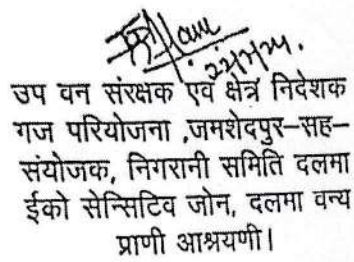 उप वन संरक्षक एवं क्षेत्र निदेशक
गज परियोजना ,जमशेदपुर–सह–
संयोजक, निगरानी समिति दलमा
ईको सेन्सिटिव जोन, दलमा वन्य
प्राणी आश्रयणी।